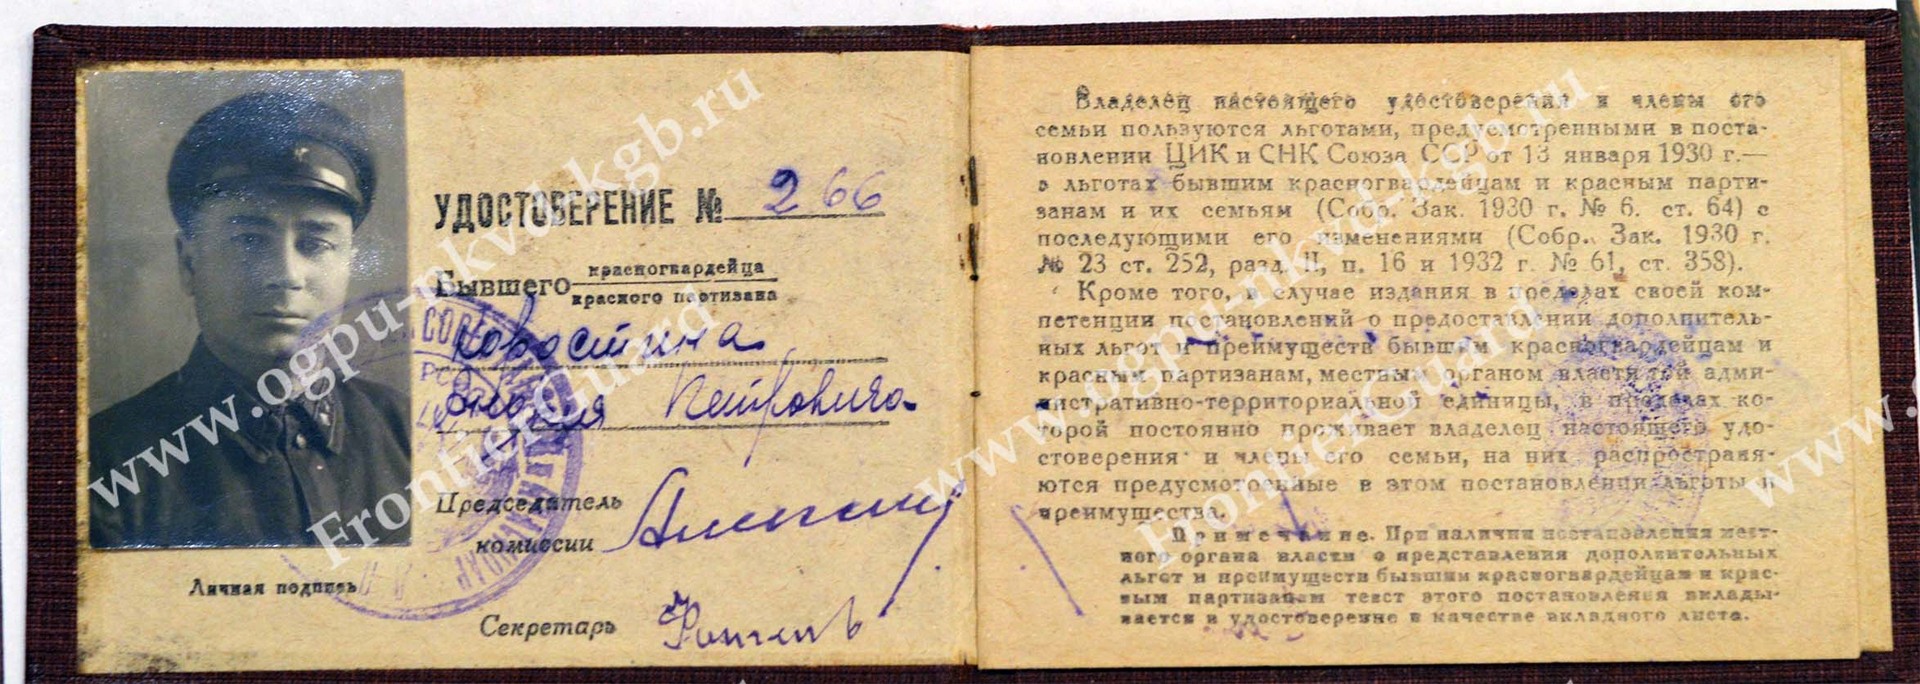 УДОСТОВЕРЕНИЕ № 266
Бывшего красногвардейца
красного партизана
Коростина
Петровича
Председатель
комиссии
Личная подпись
Секретарь
Владелец настоящего удостоверения и члены его
семьи пользуются льготами, предусмотренными в поста-
новлении ЦИК и СНК Союза ССР от 13 января 1930 г.—
о льготах бывшим красногвардейцам и красным парти-
занам и их семьям (Собр. Зак. 1930 г. № 6. ст. 64) с
последующими его изменениями (Собр. Зак. 1930 г.
№ 23 ст. 252, разд. II, п. 16 и 1932 г. № 61, ст. 358).
Кроме того, в случае издания в пределах своей ком-
петенции постановлений о предоставлении дополнитель-
ных льгот и преимуществ бывшим красногвардейцам и
красным партизанам, местным органом власти той адми-
нистративно-территориальной единицы, в пределах ко-
торой постоянно проживает владелец настоящего удо-
стоверения и члены его семьи, на них распространя-
ются предусмотренные в этом постановлении льготы и
преимущества.
Примечание. При наличии постановления мест-
ного органа власти о представлении дополнительных
льгот и преимуществ бывшим красногвардейцам и крас-
ным партизанам текст этого постановления вклады-
вается в удостоверение в качестве вкладного листа.
www.ogpu-nkvd-kgb.ru
Frontier Guard
www.ogpu-nkvd-kgb.ru
Frontier Guard